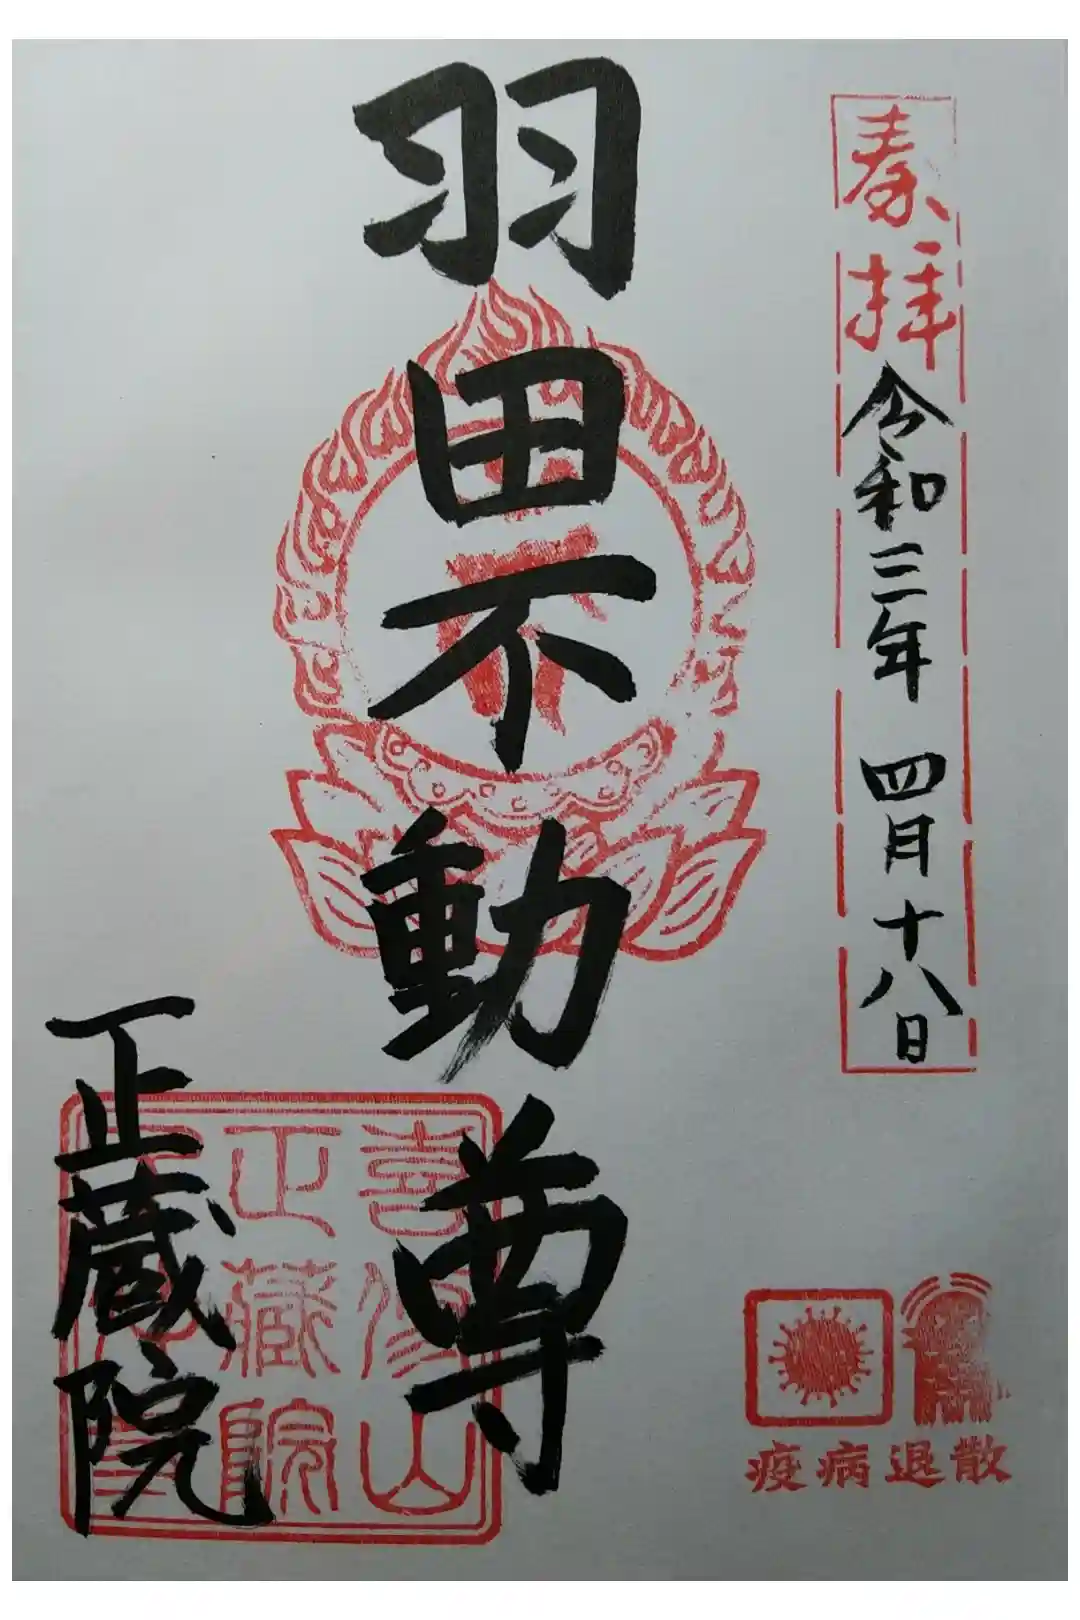 奉拝
令和三年 四月十八日
羽田不動尊
正蔵院
喜修山
正藏院
疫病退散